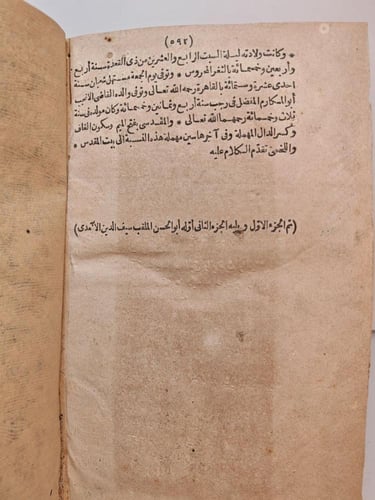 (٥٩٢)
* وكانت ولادته ليلة السبت الرابع والعشرين من ذى القعدة سنة أربع
وأربعين وخمسمائة بالثغر المحروس * وتوفى يوم الجمعة مستهل شعبان سنة
احدى عشرة وستمائة بالقاهرة رحمه الله تعالى وتوفى والده القاضى الانجب
أبو المكارم المفضل فى رجب سنة أربع وثمانين وخمسمائة وكان مولده فى سنة
ثلاث وخمسمائة رحمهما الله تعالى * والمقدسى بفتح الميم وسكون القاف
وكسر الدال المهملة وفى آخرها سين مهملة هذه النسبة الى بيت المقدس *
واللخمى تقدّم الكلام عليه
(تم الجزء الاول ويليه الجزء الثانى أوله أبو الحسن الملقب سيف الدين الآمدى)